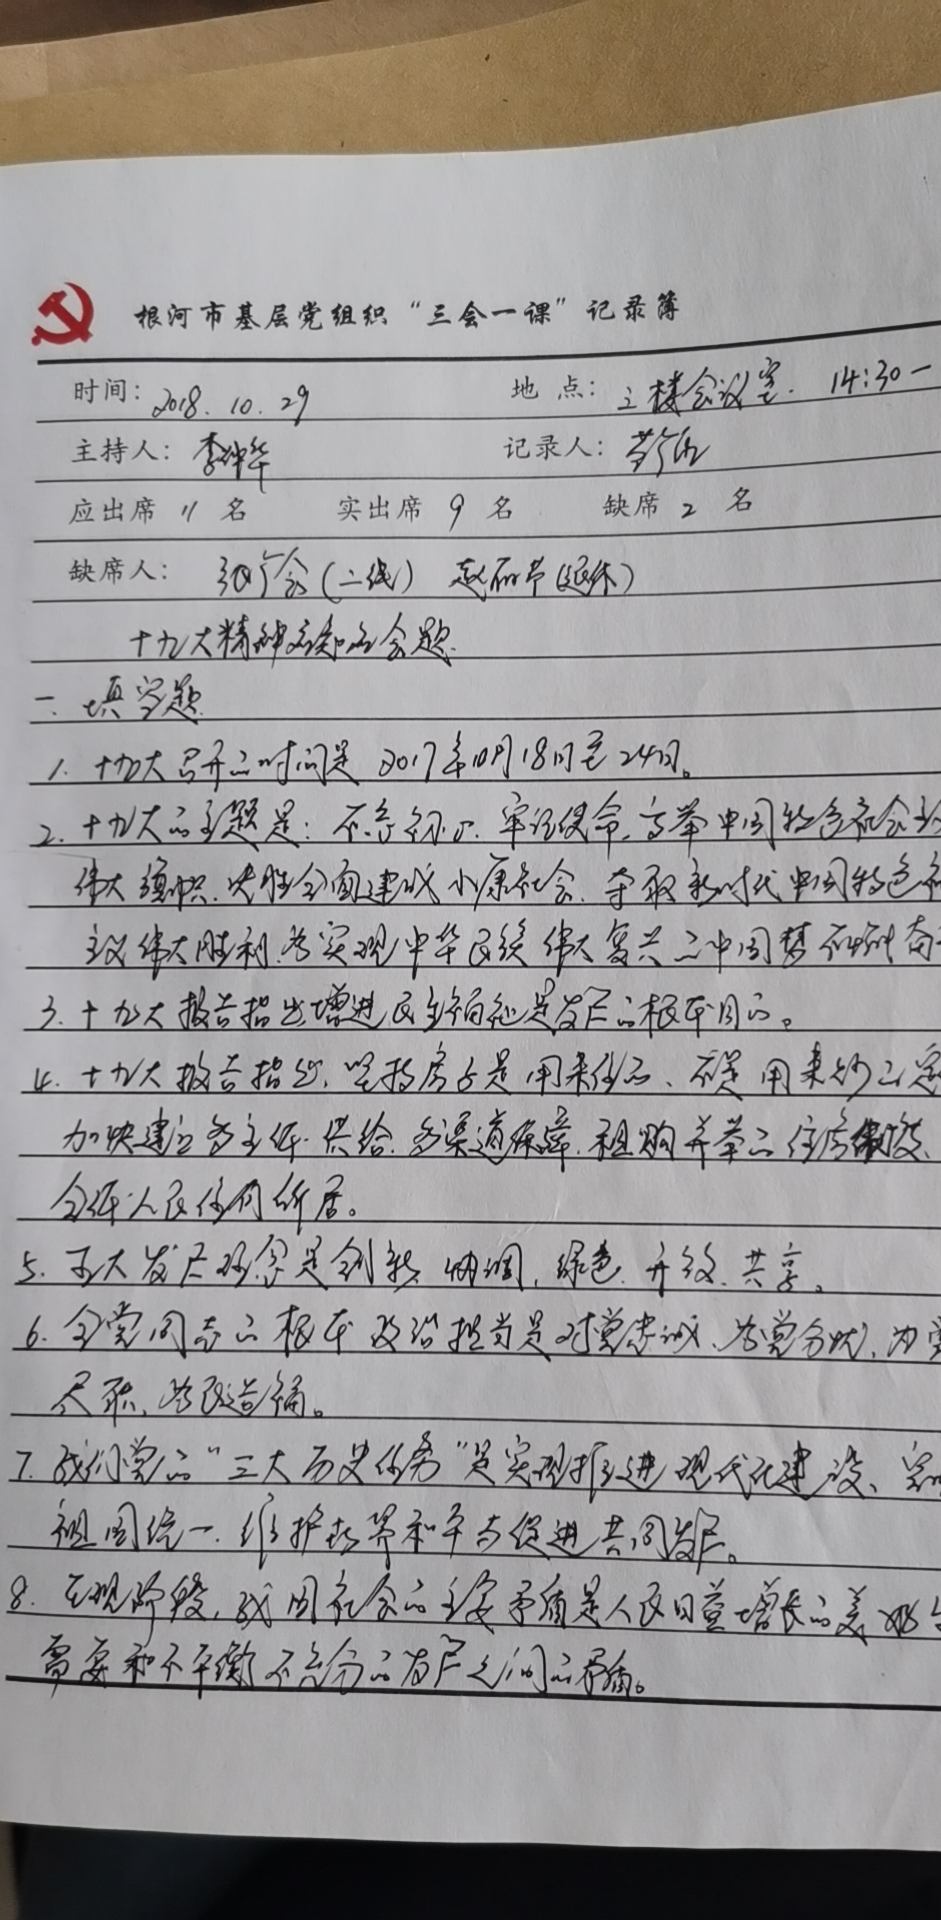 根河市基层党组织“三会一课”记录簿
时间：2018.10.29 地点：三楼会议室. 14:30一
主持人：李坤华 记录人：
应出席 11 名 实出席 9 名 缺席 2 名
缺席人： （二线） （退休）
十九大精神应知应会题.
一. 填空题
1. 十九大召开的时间是 2017年10月18日至24日。
2. 十九大的主题是：不忘初心. 牢记使命, 高举中国特色社会主
伟大旗帜. 决胜全面建成小康社会. 夺取新时代中国特色社
主义伟大胜利. 为实现中华民族伟大复兴的中国梦不懈奋
3. 十九大报告指出增进民生福祉是发展的根本目的。
4. 十九大报告指出, 坚持房子是用来住的、不是用来炒的定
加快建立多主体. 供给. 多渠道保障. 租购并举的住房制度、
全体人民住有所居。
5. 五大发展理念是创新. 协调, 绿色. 开放. 共享。
6. 全党同志的根本政治担当是对党忠诚、为党分忧、为党
尽职、为民造福。
7. 我们党的“三大历史任务”是实现推进现代化建设、完
祖国统一. 维护世界和平与促进共同发展。
8. 在现阶段, 我国社会的主要矛盾是人民日益增长的美好生
需要和不平衡不充分的发展之间的矛盾。